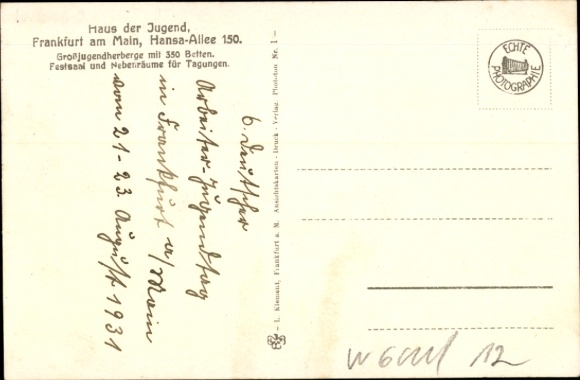 Haus der Jugend,
Frankfurt am Main, Hansa-Allee 150.
Großjugendherberge mit 350 Betten.
Festsaal und Nebenräume für Tagungen.
6. Deutscher
Arbeiter-Jugendtag
in Frankfurt a/Main
vom 21-23. August 1931
L. Klement, Frankfurt a. M. Ansichtskarten-Druck-Verlag. Phototon Nr. 1
ECHTE
PHOTOGRAPHIE
12